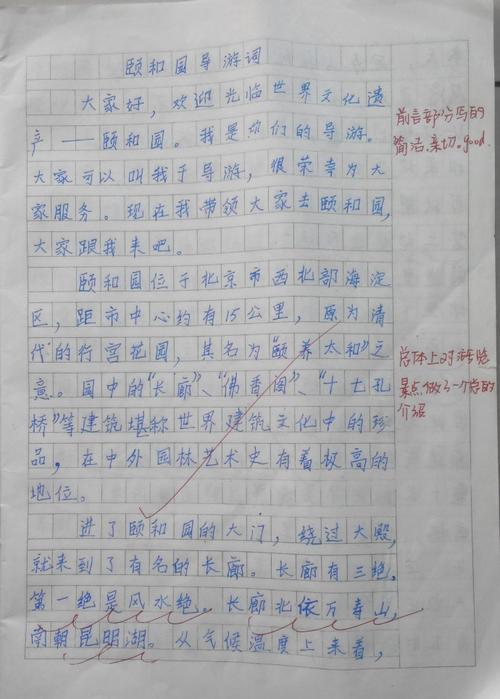 颐和园导游词
大家好，欢迎光临世界文化遗
产——颐和园。我是你们的导游。
大家可以叫我于导游，很荣幸为大
家服务。现在我带领大家去颐和园，
大家跟我来吧。
颐和园位于北京市西北部海淀
区，距市中心约有15公里，原为清
代的行宫花园，其名为“颐养太和”之
意。园中的“长廊”、“佛香阁”、“十七孔
桥”等建筑堪称世界建筑文化中的珍
品，在中外园林艺术史有着极高的
地位。
进了颐和园的大门，绕过大殿，
就来到了有名的长廊。长廊有三绝，
第一绝是风水绝。长廊北依万寿山，
南朝昆明湖。从气候温度上来看，
前言部分写的
简洁、亲切。good.
总体上对游览
景点做了一个总的
介绍